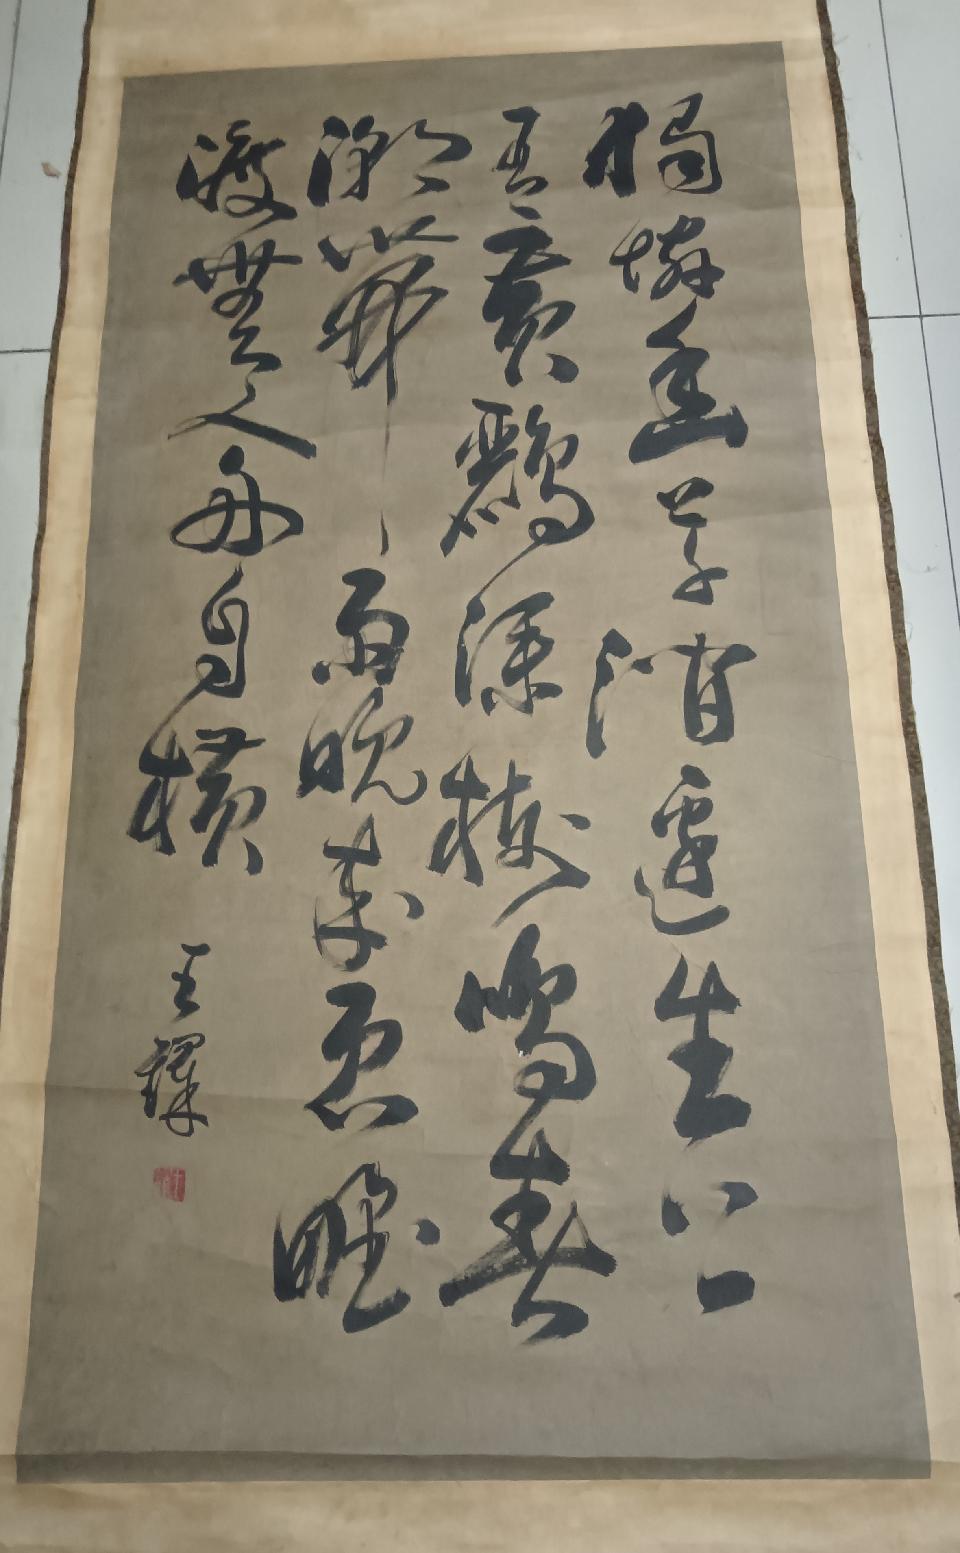 獨憐幽草澗邊生上
有黃鸝深樹鳴春
潮帶雨晚來急野
渡無人舟自橫
王鐸